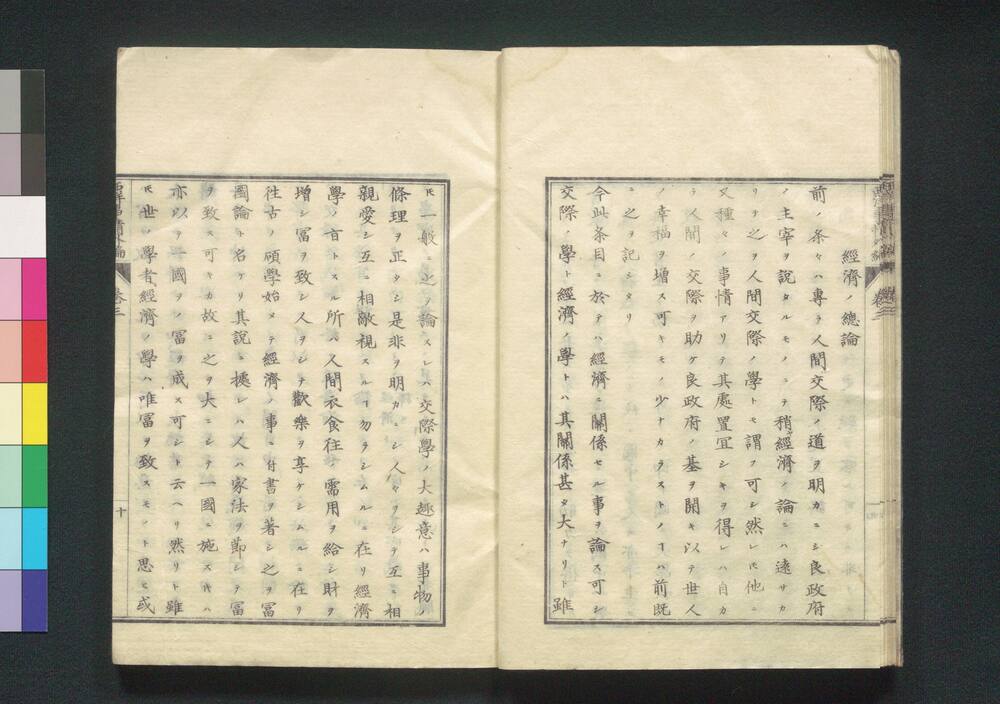 經濟ノ總論
前ノ条々ハ專ラ人間交際ノ道ヲ明カニシ良政府
ノ主宰ヲ說タルモノニテ稍經濟ノ論ニハ遠サカ
リヲ之ヲ人間交際ノ學トモ謂フ可シ然レ𪜈他ニ
又種々ノ事情アリテ其處置宜シキヲ得レハ自カ
ラ人間ノ交際ヲ助ケ良政府ノ基ヲ開キ以テ世人
ノ幸福ヲ增ス可キモノ少ナカラストノヿハ前既
ニ之ヲ記シタリ
今此条目ニ於テハ經濟ニ關係セル事ヲ論ス可シ
交際ノ學ト經濟ノ學トハ其關係甚タ大ナリト雖
𪜈一般ニ之ヲ論スレハ交際學ノ大趣意ハ事物ノ
條理ヲ正タシ是非ヲ明カニシ人々ヲシテ互ニ相
親愛シ互ニ相敵視スルヿ勿ラシムルニ在リ經濟
學ノ旨トスル所ハ人間衣食住ノ需用ヲ給シ財ヲ
增シ冨ヲ致シ人ヲシテ歡樂ヲ享ケシムルニ在リ
徃古ノ碩學始メテ經濟ノ事ニ付書ヲ著シ之ヲ冨
國論ト名ケリ其說ニ據レハ人ハ家法ヲ節シテ冨
ヲ致ス可キカ故ニ之ヲ大ニシテ一國ニ施スモ𪜈ハ
亦以テ一國ヲノ冨ヲ成ス可シト云ヘリ然リト雖
𪜈世ノ學者經濟ノ學ハ唯冨ヲ致スモノト思ヒ或
西洋事情外編
卷三
十